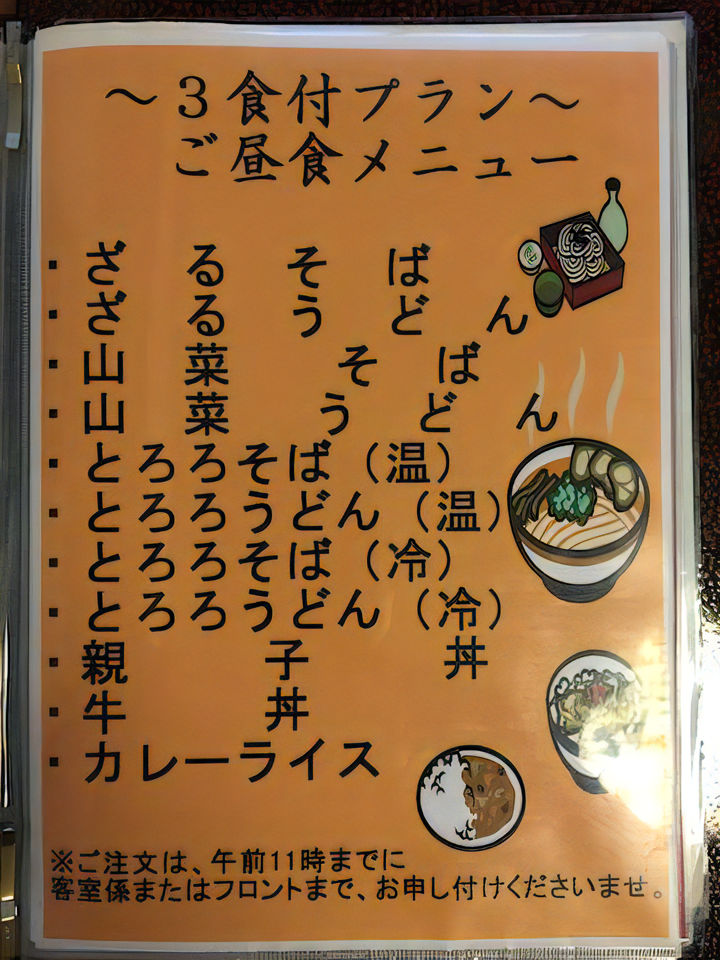 ～３食付プラン～
ご昼食メニュー
・ざるそば
・ざるうどん
・山菜そば
・山菜うどん
・とろろそば（温）
・とろろうどん（温）
・とろろそば（冷）
・とろろうどん（冷）
・親子丼
・牛丼
・カレーライス
※ご注文は、午前11時までに
客室係またはフロントまで、お申し付けくださいませ。